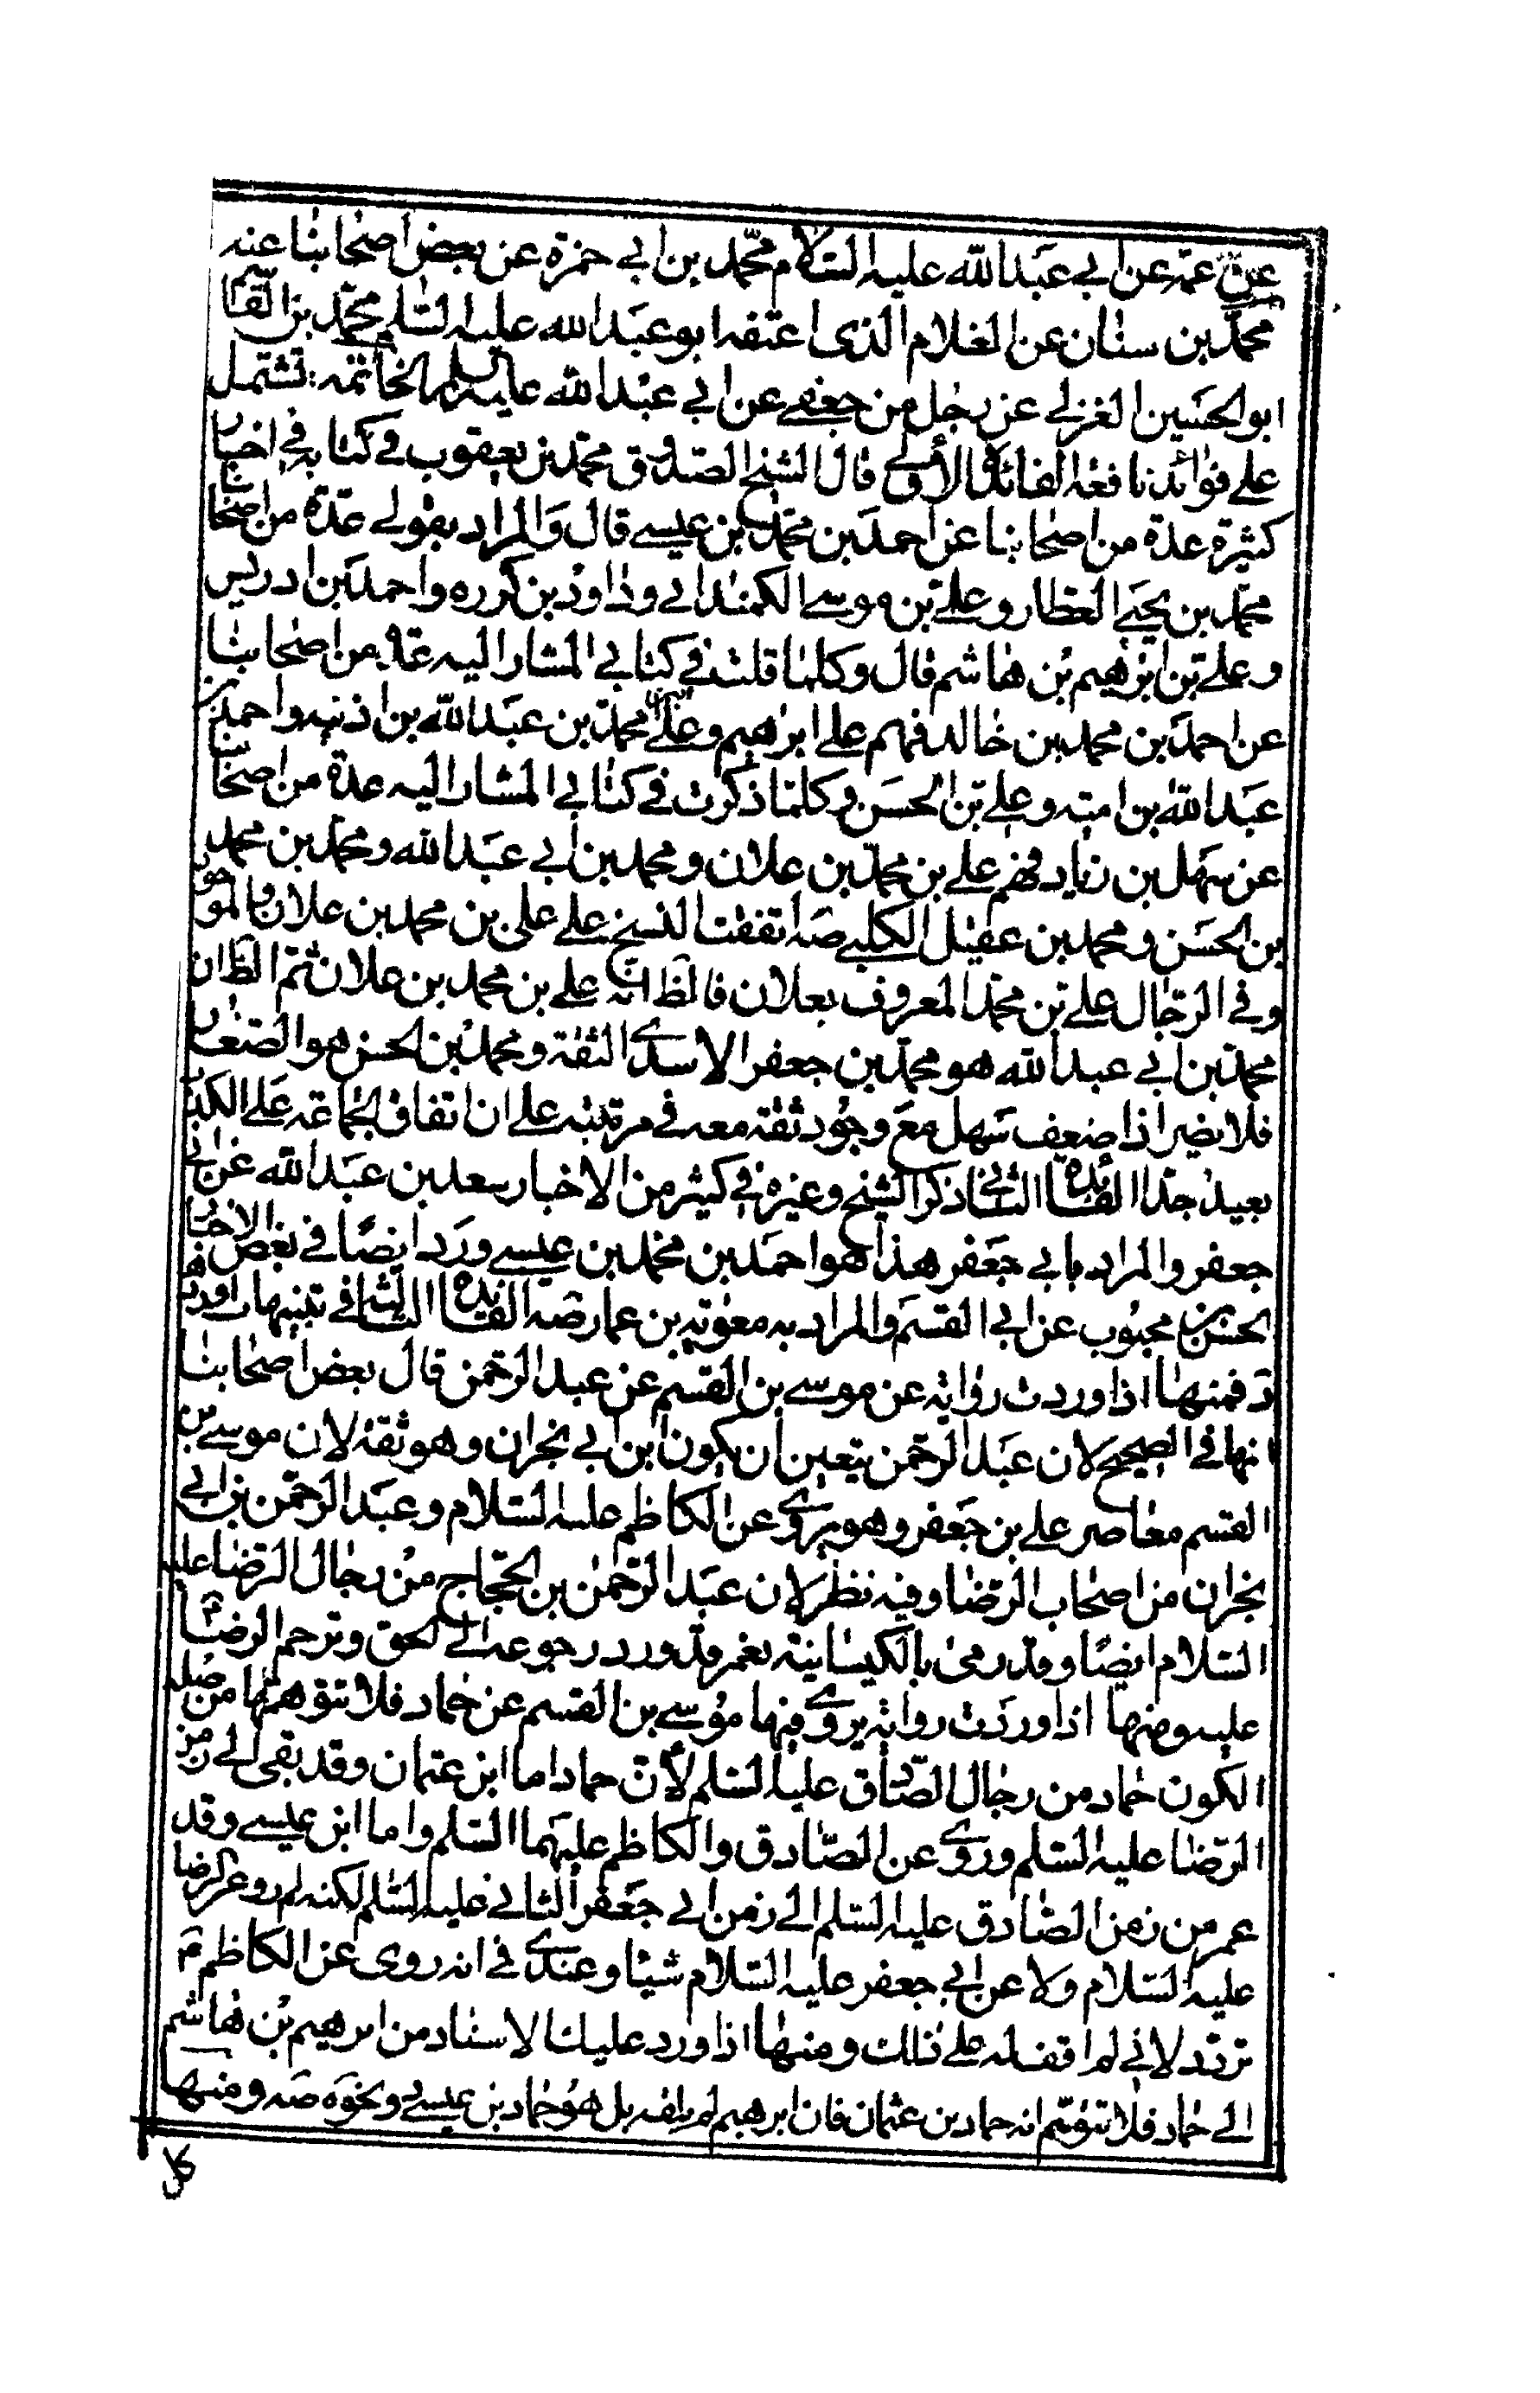 عن عمه عن ابي عبد الله عليه السلام محمد بن ابي حمزة عن بعض اصحابنا عنه
محمد بن سنان عن الغلام الذى اعتقه ابو عبد الله عليه السلم محمد بن القاسم
ابو الحسين الغزلي عن رجل من جعفي عن ابي عبد الله عليه السلم الخاتمه تشتمل
على فوائد نافعه الفائدة الأولى قال الشيخ الصدوق محمد بن يعقوب في كتابه في اخبار
كثيرة عدة من اصحابنا عن احمد بن محمد بن عيسى قال والمراد بقولى عدة من اصحابنا
محمد بن يحيى العطار وعلى بن موسى الكمنداني وداود بن كرره واحمد بن ادريس
وعلى بن ابرهيم بن هاشم قال وكلما قلت في كتابي المشار اليه عدة من اصحابنا
عن احمد بن محمد بن خالد فهم على ابرهيم وعلى بن محمد بن عبد الله بن اذنيه واحمد بن
عبد الله بن اميه وعلى بن الحسن وكلما ذكرت في كتابي المشار اليه عدة من اصحابنا
عن سهل بن زياد فهم على بن محمد بن علان ومحمد بن ابي عبد الله ومحمد بن محمد
بن الحسن ومحمد بن عقيل الكليني صه اتفقت النسخ على على بن محمد بن علان والموجود
وفي الرجال على بن محمد المعروف بعلان فالظ انه على بن محمد بن علان ثم الظ ان
محمد بن ابي عبد الله هو محمد بن جعفر الاسدى الثقة ومحمد بن الحسن هو الصفار
فلا يضير اذا ضعف سهل مع وجود ثقة معه في مرتبته على ان اتفاق الجماعة على الكذب
بعيد جدا الفائدة الثانية ذكر الشيخ وغيره في كثير من الاخبار سعد بن عبد الله عن ابي
جعفر والمراد بابي جعفر هذا هو احمد بن محمد بن عيسى ورد ايضا في بعض الاخبار
الحسن بن محبوب عن ابي القسم والمراد به معوية بن عمار صه الفائدة الثالثة في تنبيهات اوردها
د فمنها اذا وردت رواية عن موسى بن القسم عن عبد الرحمن قال بعض اصحابنا
انها في الصحيح لان عبد الرحمن يتعين ان يكون ابن ابي نجران وهو ثقة لان موسى بن
القسم معاصر على بن جعفر وهو يروى عن الكاظم عليه السلام وعبد الرحمن بن ابي
نجران من اصحاب الرضا وفيه نظر لان عبد الرحمن بن الحجاج من رجال الرضا عليه
السلام ايضا وقد رمى بالكيسانية نعم قد ورد رجوعه الى الحق وترحم الرضا
عليه ومنها اذا وردت رواية يروى فيها موسى بن القسم عن حماد فلا تتوهمها من
الكون حماد من رجال الصادق عليه السلم لان حماد اما ابن عثمان وقد بقى الى زمن
الرضا عليه السلم وروى عن الصادق والكاظم عليهما السلم واما ابن عيسى وقد
عمر من زمن الصادق عليه السلم الى زمن ابي جعفر الثاني عليه السلم لكنه لم يرو عن الرضا
عليه السلام ولا عن ابي جعفر عليه السلام شيئا وعندى في انه روى عن الكاظم م
تردد لاني لم اقف له على ذلك ومنها اذا ورد عليك الاسناد من ابرهيم بن هاشم
الى حماد فلا تتوهم انه حماد بن عثمان فان ابرهيم لم يلقه بل هو حماد بن عيسى ونحوه صه ومنها
كل